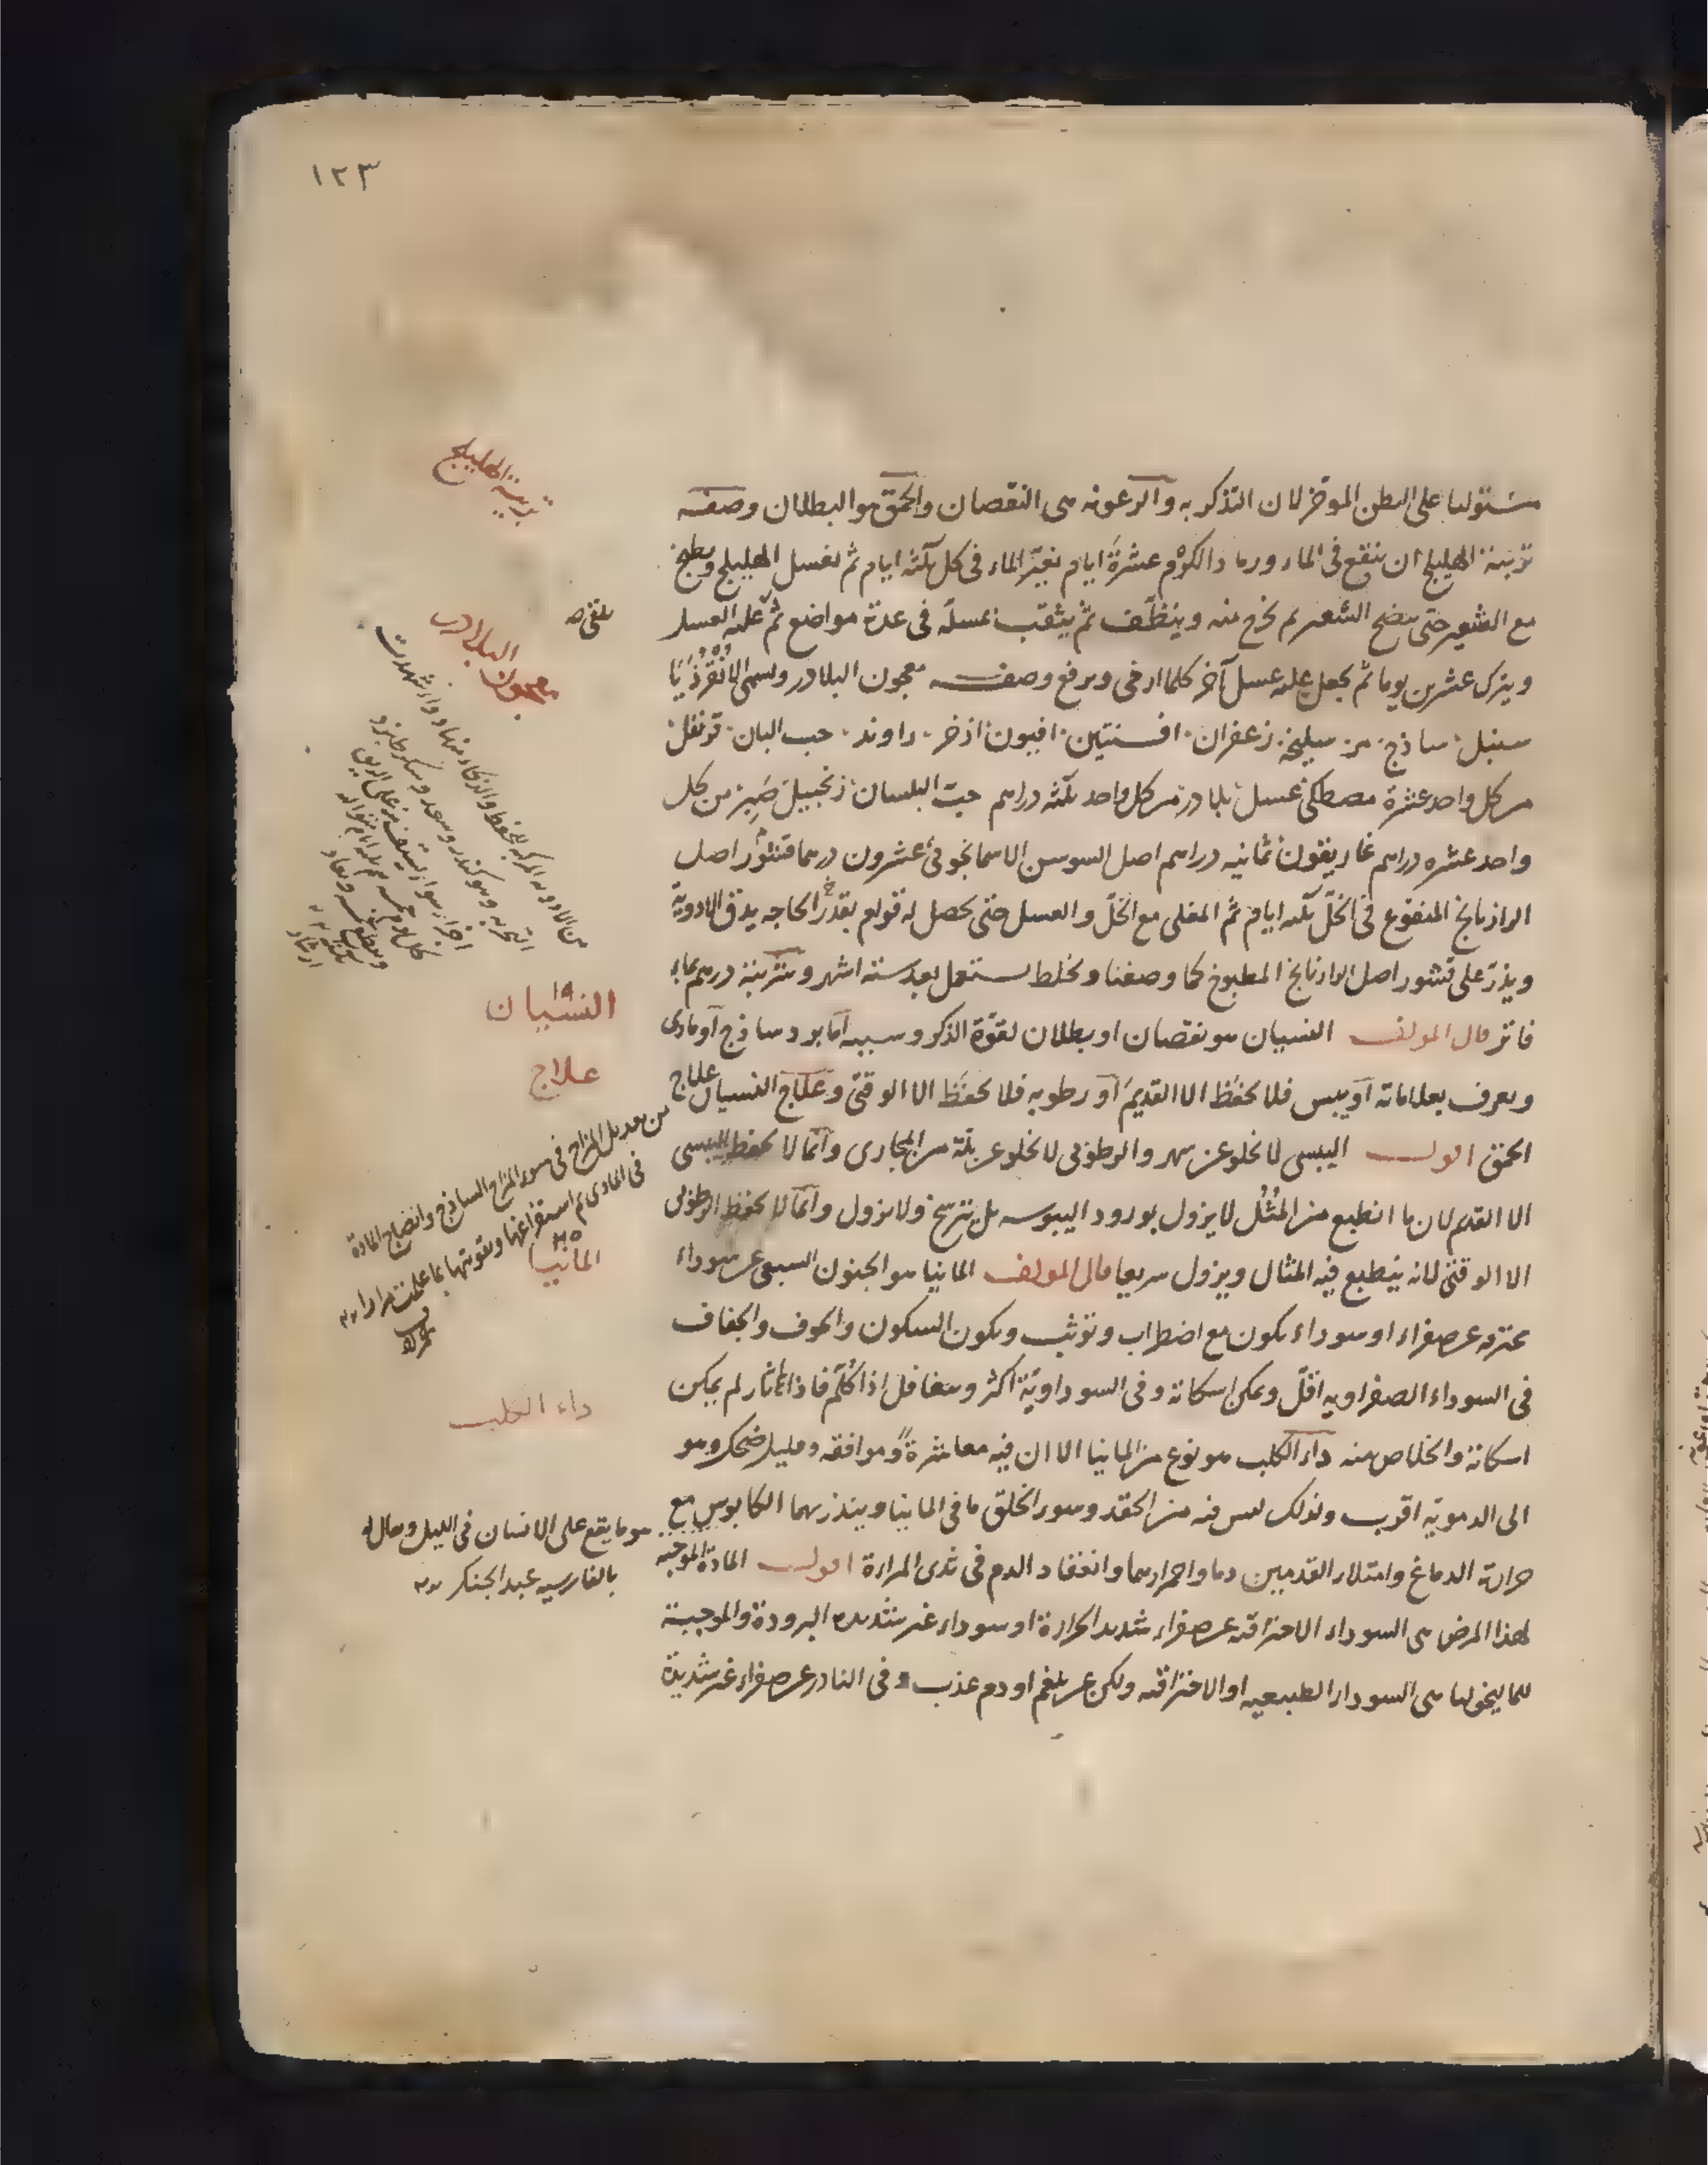 ١٢٣
مستوليا على البطن الموخر لان التذكر به والرعونه هى النقصان والحمق هو البطلان وصفه
تربية الهليلج ان ينقع فى الماء ورماد الكرم عشرة ايام يغير الماء فى كل ثلثه ايام ثم يغسل الهليلج ويطبخ
مع الشعير حتى ينضج الشعير ثم يخرج منه وينظف ثم يثقب بمسلة فى عدة مواضع ثم عليه العسل
ويترك عشرين يوما ثم يجعل عليه عسل آخر كلما ارخى ويرفع وصفـــه معجون البلادر ويسمى الانقرذيا
سنبل ساذج مر سليخه زعفران افسنتين افيون اذخر راوند حب البان قرنفل
من كل واحد عشرة مصطكى عسل بلادر من كل واحد ثلثه دراهم حب البلسان زنجبيل صبر من كل
واحد عشره دراهم غاريقون ثمانيه دراهم اصل السوسن الاسمانجونى عشرون درهما قشور اصل
الرازيانج المنقوع فى الخل ثلثه ايام ثم المغلى مع الخل والعسل حتى يحصل له قوام بقدر الحاجه يدق الادوية
ويذر على قشور اصل الرازيانج المطبوخ كما وصفنا ويخلط يستعمل بعد سته اشهر وشربته درهم بماء
فاتر قال المولف النسيان هو نقصان او بطلان لقوة الذكر وسببه اما برد ساذج او مادى
ويعرف بعلاماته او يبس فلا يحفظ الا القديم او رطوبه فلا يحفظ الا الوقتى وعلاج النسيان علاج
الحمق اقول اليبسى لا يخلو عن سهر والرطوبى لا يخلو عن بلة من المجارى وانما لا يحفظ اليبسى
الا القديم لان ما انطبع من المثل لا يزول بورود اليبوسه بل يترسخ ولا يزول وانما لا يحفظ الرطوبى
الا الوقتى لانه ينطبع فيه المثال ويزول سريعا قال المولف المانيا هو الجنون السبعى عن سوداء
محترقه عن صفراء او سوداء يكون مع اضطراب وتوثب ويكون السكون والخوف والجفاف
فى السوداء الصفراويه اقل ويمكن اسكاته وفى السوداوية اكثر ويتغافل اذا كلم فاذا ثار لم يمكن
اسكاته والخلاص منه داء الكلب هو نوع من المانيا الا ان فيه معاشرة وموافقه وقليل ضحك وهو
الى الدمويه اقرب ولذلك ليس فيه من الحقد وسوء الخلق ما فى المانيا وينذر بهما الكابوس مع
حرارة الدماغ وامتلاء القدمين دما واحمرارهما وانعقاد الدم فى ثدى المراءة اقول المادة الموجبه
لهذا المرض هى السوداء الاحتراقيه عن صفراء شديد الحرارة او سوداء غير شديده البرودة والموجبة
للماليخوليا هى السوداء الطبيعيه او الاحتراقيه ولكن عن بلغم او دم عذب وفى النادر عن صفراء غير شديدة
تربية الهليلج
يلقى
معجون البلادر
النسيان
علاج
من تعديل المزاج فى سوء المزاج الساذج وانضاج المادة
فى المادى ثم استفراغها وتقويتها بما علمت مرارا
المانيا
داء الكلب
هو ما يقع على الانسان فى الليل ويقال له
بالفارسيه